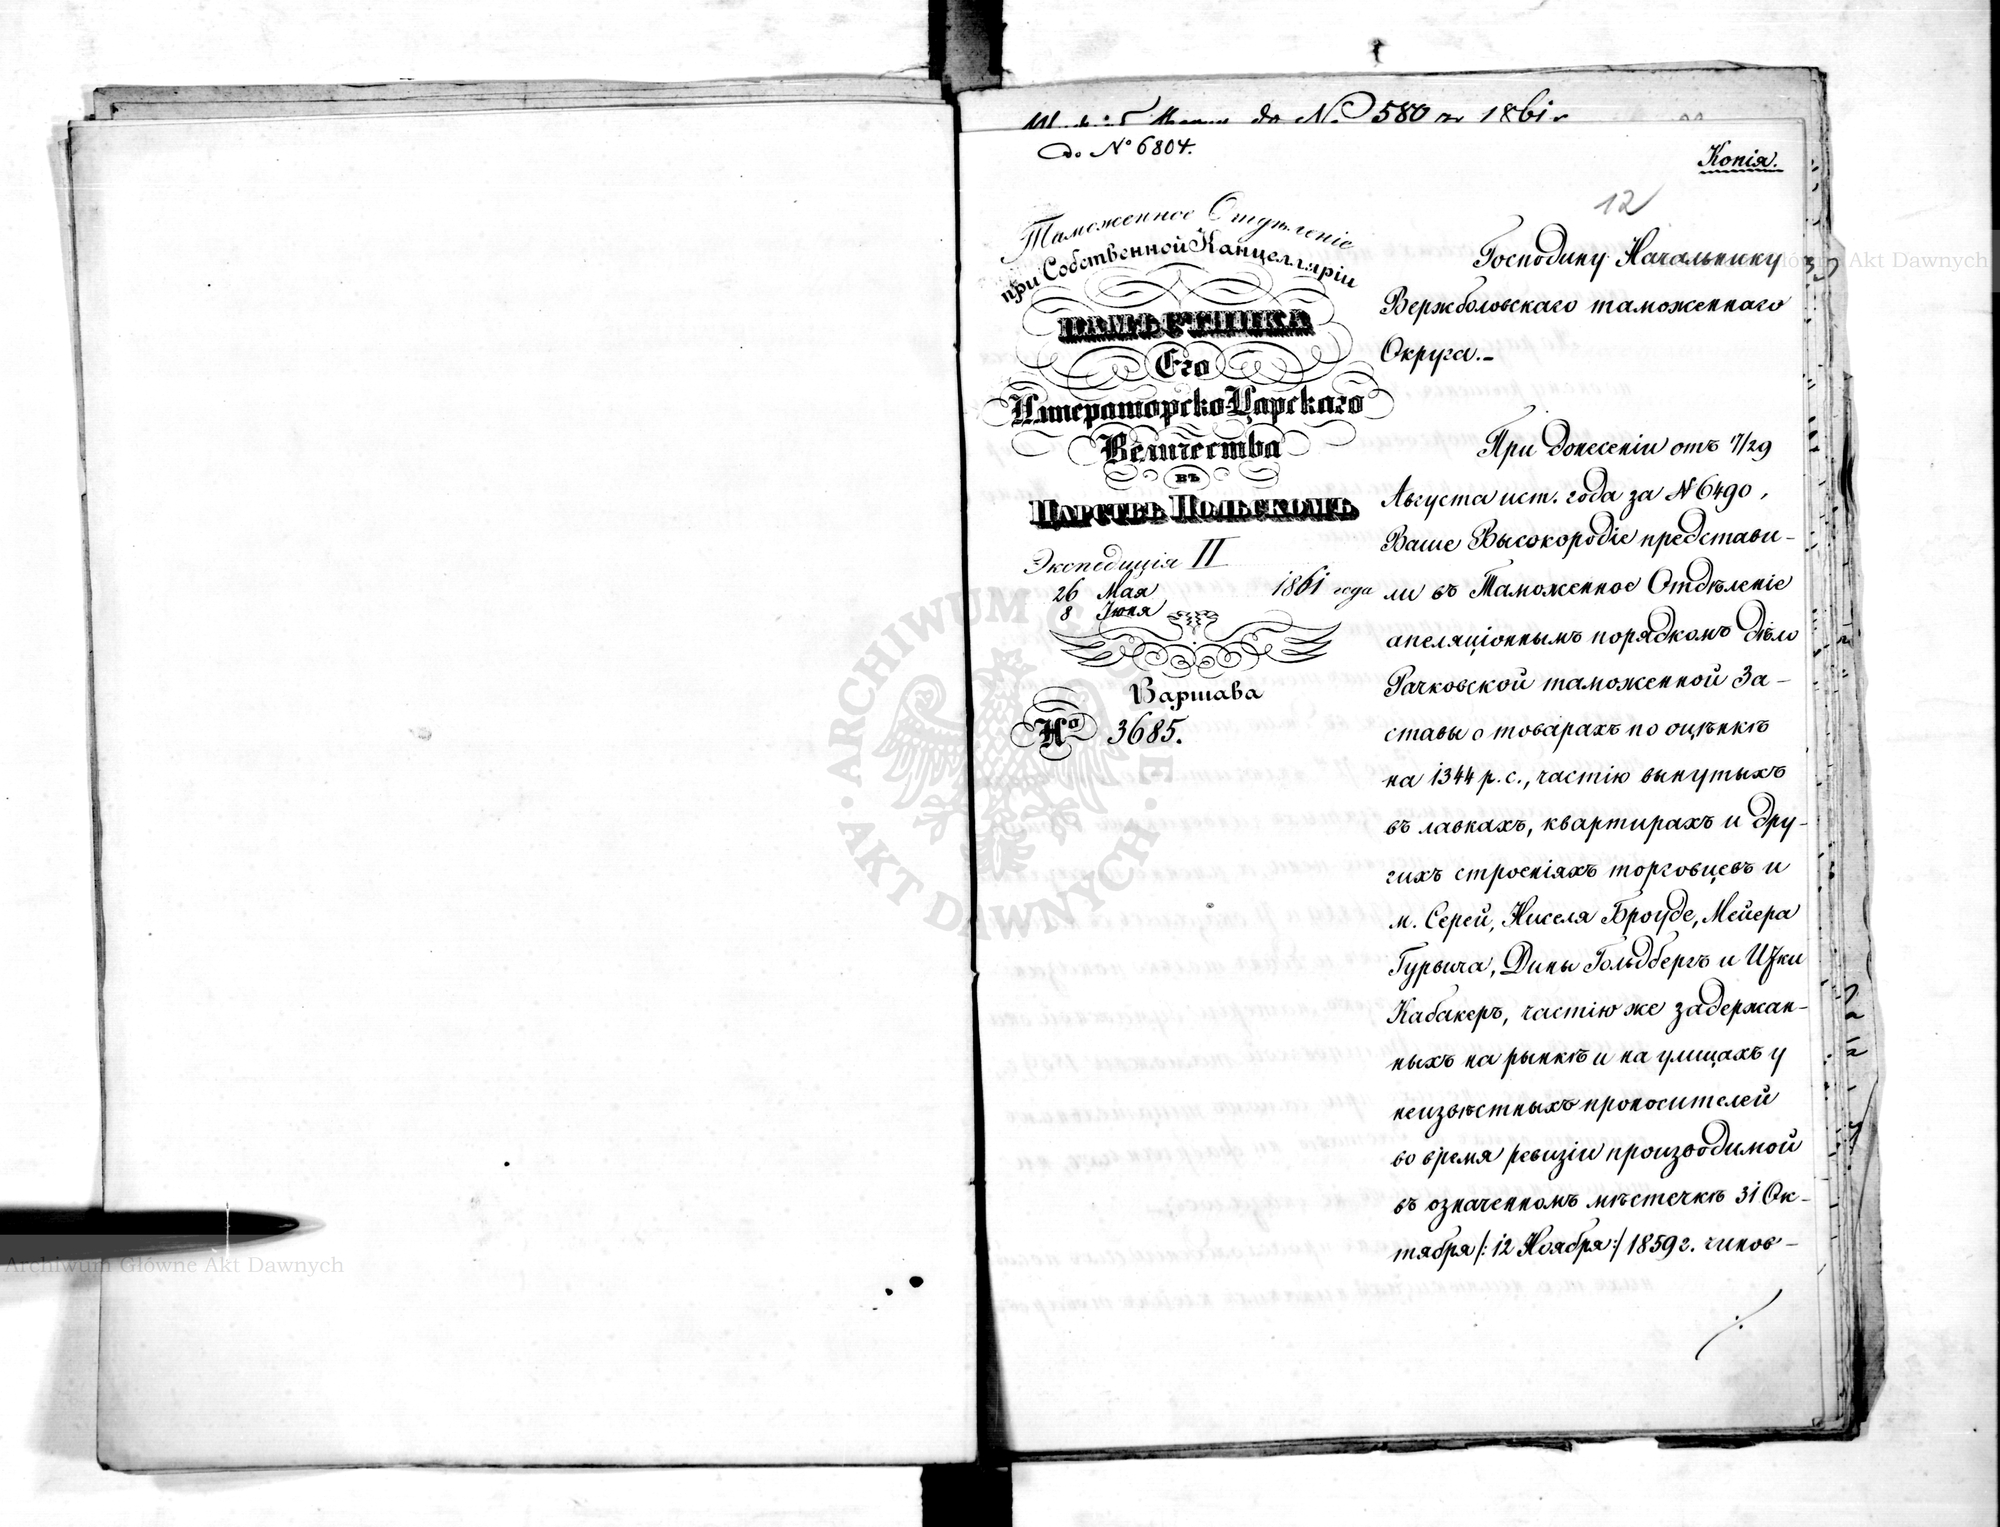 до № 580 1861 г.
до № 6804.
Копія.
12
Таможенное Отдѣленіе
при Собственной Канцелляріи
НАМѢСТНИКА
Его
Императорско-Царскаго
Величества
въ
Царствѣ Польскомъ
Экспедиція II
26 Мая 1861 года
8 Іюня
Варшава
№ 3685.
Господину Начальнику
Вержболовскаго таможеннаго
Округа.-
При донесеніи отъ 17/29
Августа ист. года за № 6490,
Ваше Высокородіе представи-
ли въ Таможенное Отдѣленіе
апеляціоннымъ порядкомъ дѣло
Рачковской таможенной За-
ставы о товарахъ по оцѣнкѣ
на 1344 р. с., частію вынутыхъ
въ лавкахъ, квартирахъ и дру-
гихъ строеніяхъ торговцевъ и
м. Серей, Киселя Броуде, Мейера
Гурвича, Дины Гольдбергъ и Ицки
Кабакеръ, частію же задержан-
ныхъ на рынкѣ и на улицахъ у
неизвѣстныхъ проносителей
во время ревизіи производимой
въ означенномъ мѣстечкѣ 31 Ок-
тября /: 12 Ноября :/ 1859 г. чинов-
./.
ARCHIWUM GŁÓWNE AKT DAWNYCH
Archiwum Główne Akt Dawnych
Główne Akt Dawnych